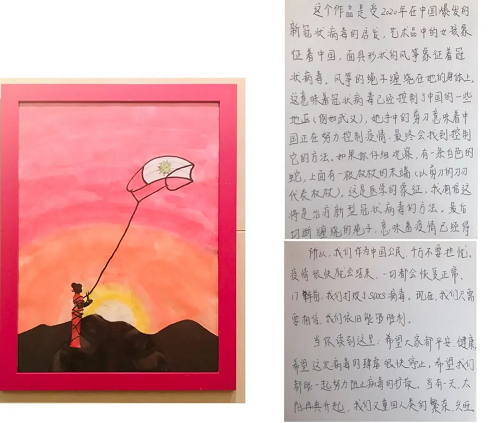 这个作品是受2020年在中国爆发的
新冠状病毒的启发，艺术品中的女孩象
征着中国，面具形状的风筝象征着冠
状病毒。风筝的绳子缠绕在她的身体上，
这意味着冠状病毒已经控制了中国的一些
地区（例如武汉），她手中的剪刀意味着中
国正在努力控制疫情，最终会找到控制
它的方法。如果你仔细观察，有一条白色的
蛇，上面有一根权杖的末端（从剪刀的刀刃
代表权杖），这是医学的象征，我相信这
将是治疗新型冠状病毒的方法。最后
切断缠绕的绳子，意味着疫情已经得
所以，我们作为中国公民，千万不要担忧，
疫情很快就会结束，一切都会恢复正常。
17年前，我们打败了SARS病毒，现在，我们只需
要相信，我们依旧能够胜利。
当你读到这里，希望大家都平安，健康，
希望这次病毒的肆虐很快停止，希望我们
都能一起努力阻止病毒的扩散，当有一天，太
阳再次升起，我们又重回人类的繁荣，兴旺